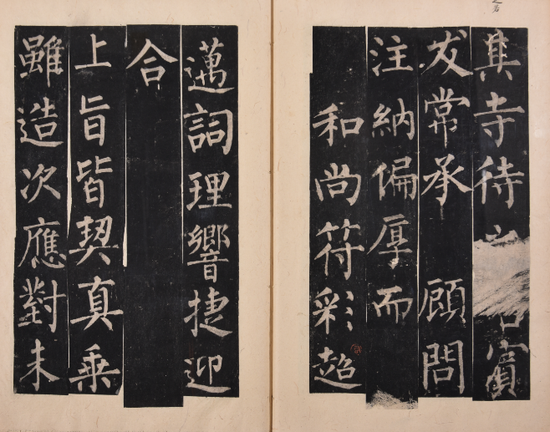 其寺待賓
友常承 顧問
注納偏厚而
和尚符彩超
邁詞理響捷迎
合
上旨皆契真乘
雖造次應對未